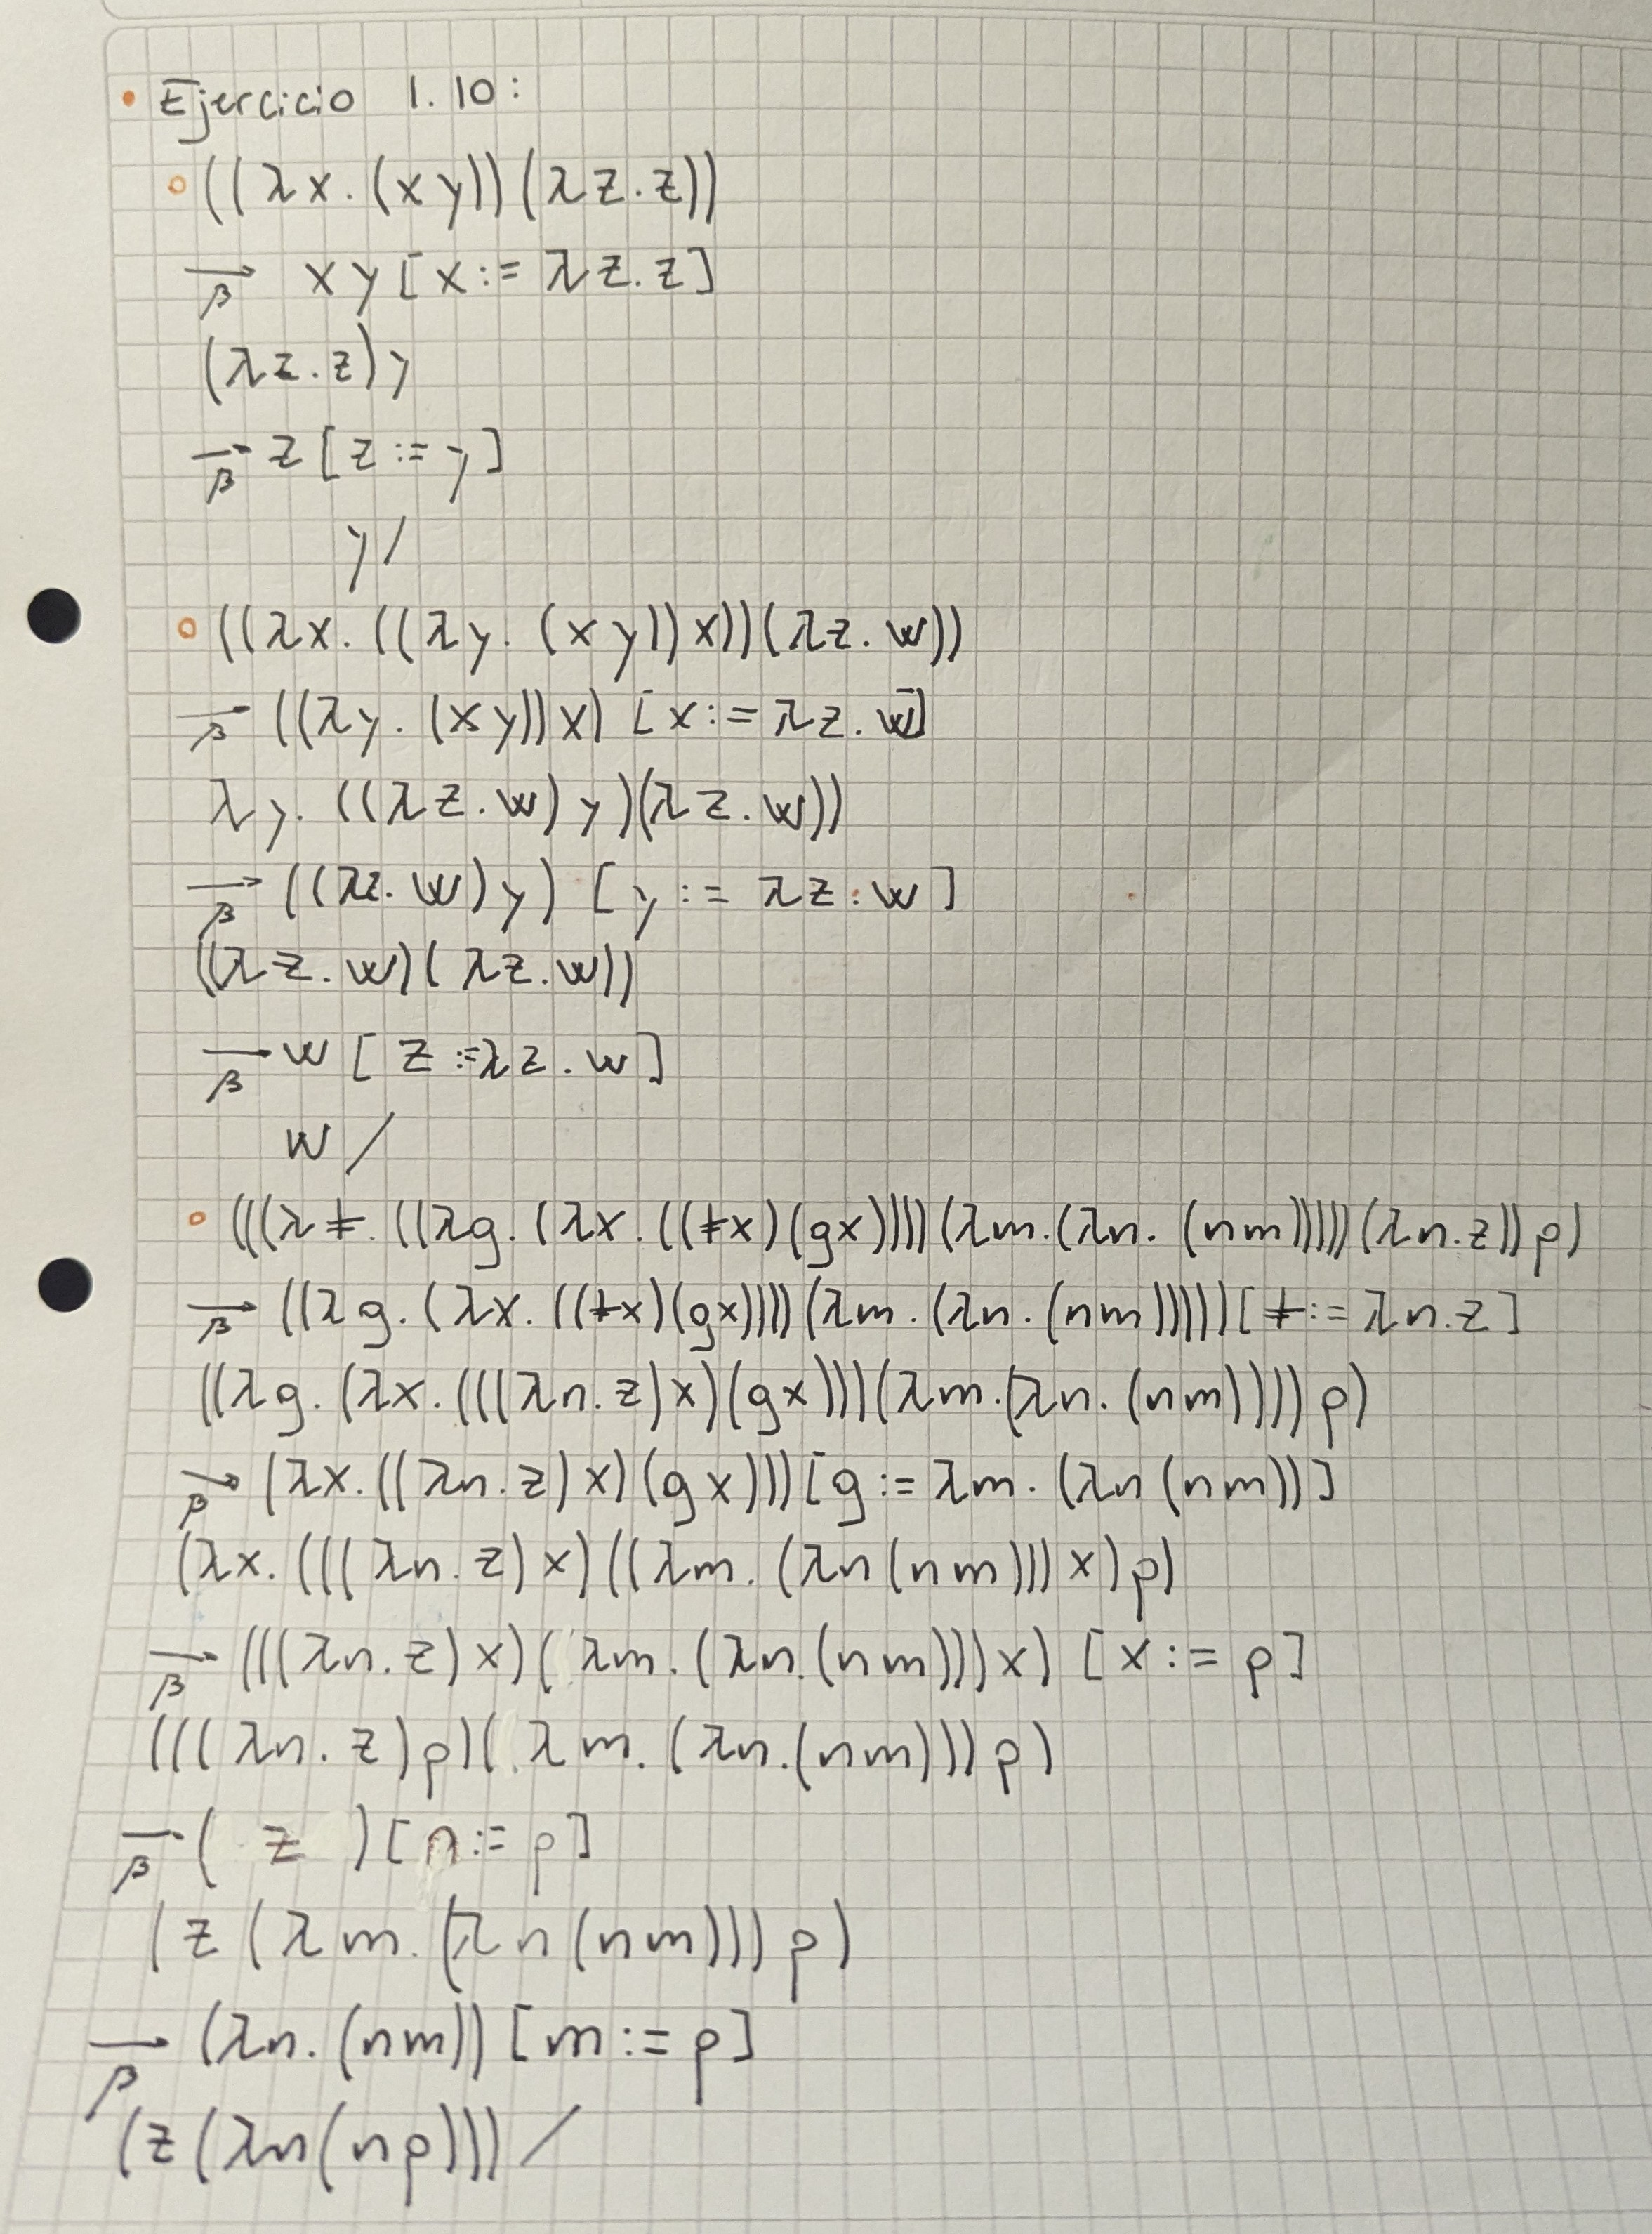 • Ejercicio 1.10:
∘ ((λx.(xy))(λz.z))
→β xy[x:= λz.z]
(λz.z)y
→β z[z:=y]
y/
∘ ((λx.((λy.(xy))x))(λz.w))
→β ((λy.(xy))x) [x:= λz.w]
λy.((λz.w)y)(λz.w))
→β ((λz.w)y) [y:= λz.w]
((λz.w)(λz.w))
→β w[z:=λz.w]
w/
∘ (((λf.((λg.(λx.((fx)(gx))))(λm.(λn.(nm)))))(λn.z))p)
→β ((λg.(λx.((fx)(gx))))(λm.(λn.(nm)))))[f:= λn.z]
((λg.(λx.(((λn.z)x)(gx)))(λm.(λn.(nm))))p)
→β (λx.((λn.z)x)(gx)))[g:= λm.(λn(nm))]
(λx.(((λn.z)x)((λm.(λn(nm)))x)p)
→β (((λn.z)x)(λm.(λn.(nm)))x) [x:= p]
(((λn.z)p)(λm.(λn.(nm)))p)
→β (z)[n:= p]
(z(λm.(λn(nm)))p)
→β (λn.(nm))[m:= p]
(z(λn(np)))/